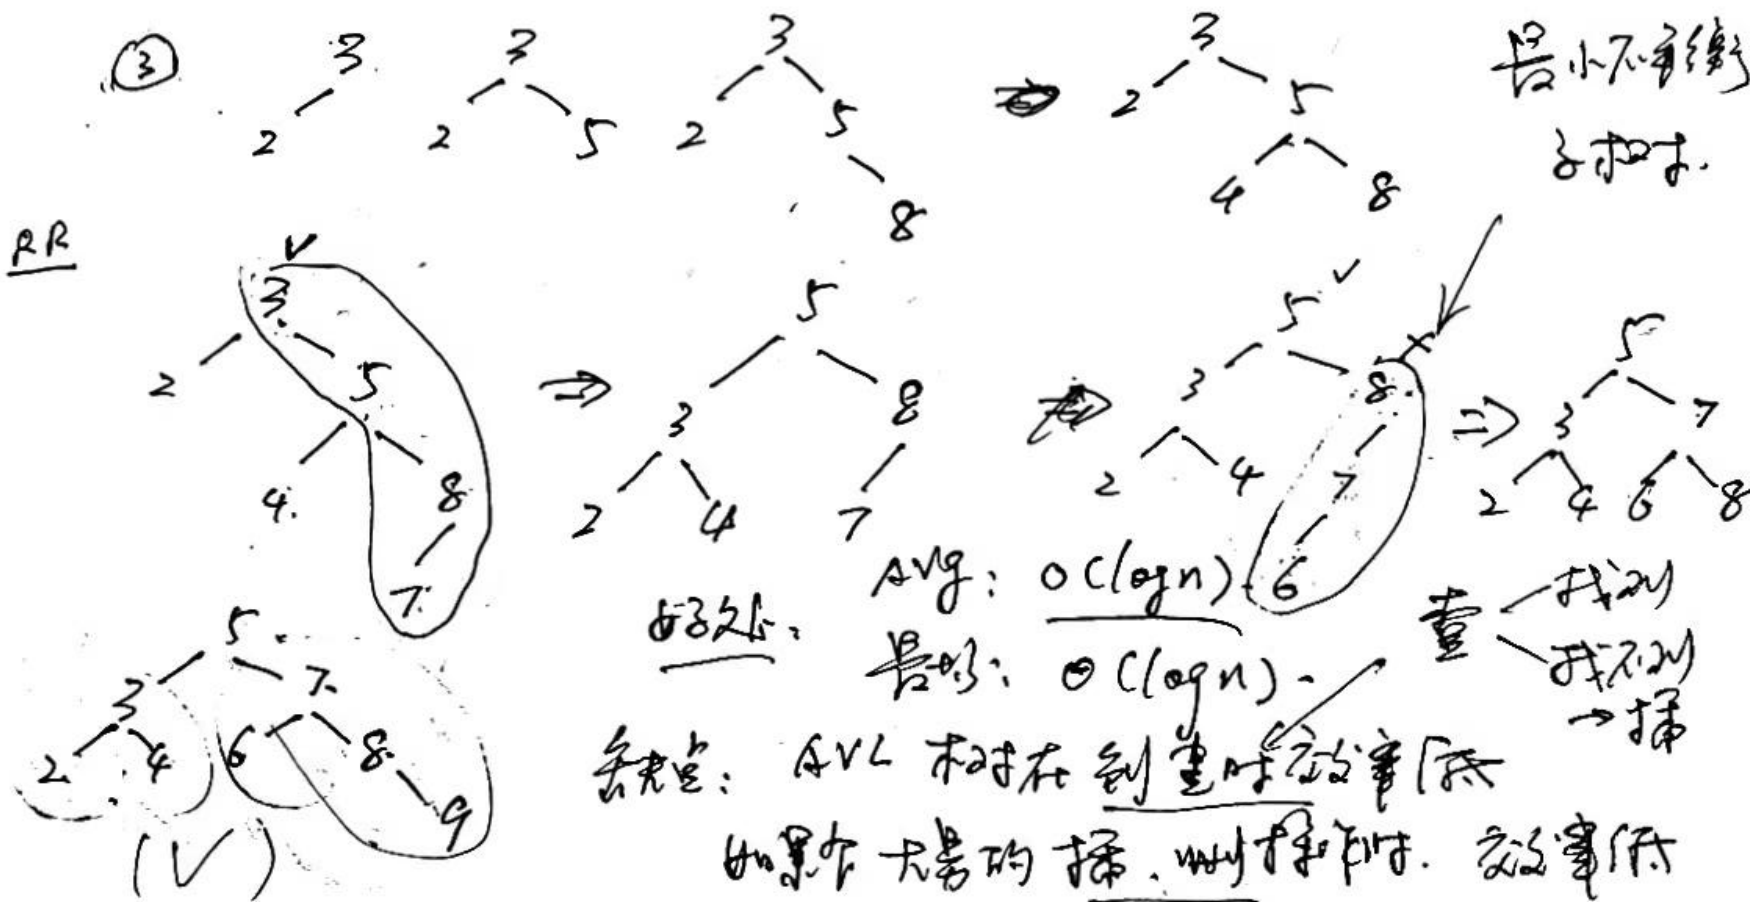 ③
3
2
3
2 5
3
2 5
8
3
2 5
4 8
最小不平衡
子树.
RR
3
2 5
4 8
7
⇒
5
3 8
2 4 7
5
3 8
2 4 7
6
⇒
5
3 7
2 4 6 8
5
3 7
2 4 6 8
9
(√)
好处:
Avg: O(logn)
最坏: O(logn).
查
找到
找不到
→插
缺点: AVL 树在创建时效率低
如果有大量的插、删操作时. 效率低